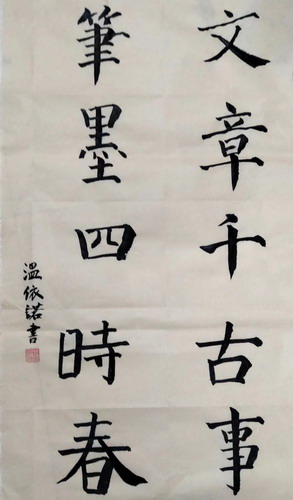 文章千古事
筆墨四時春
溫依諾書